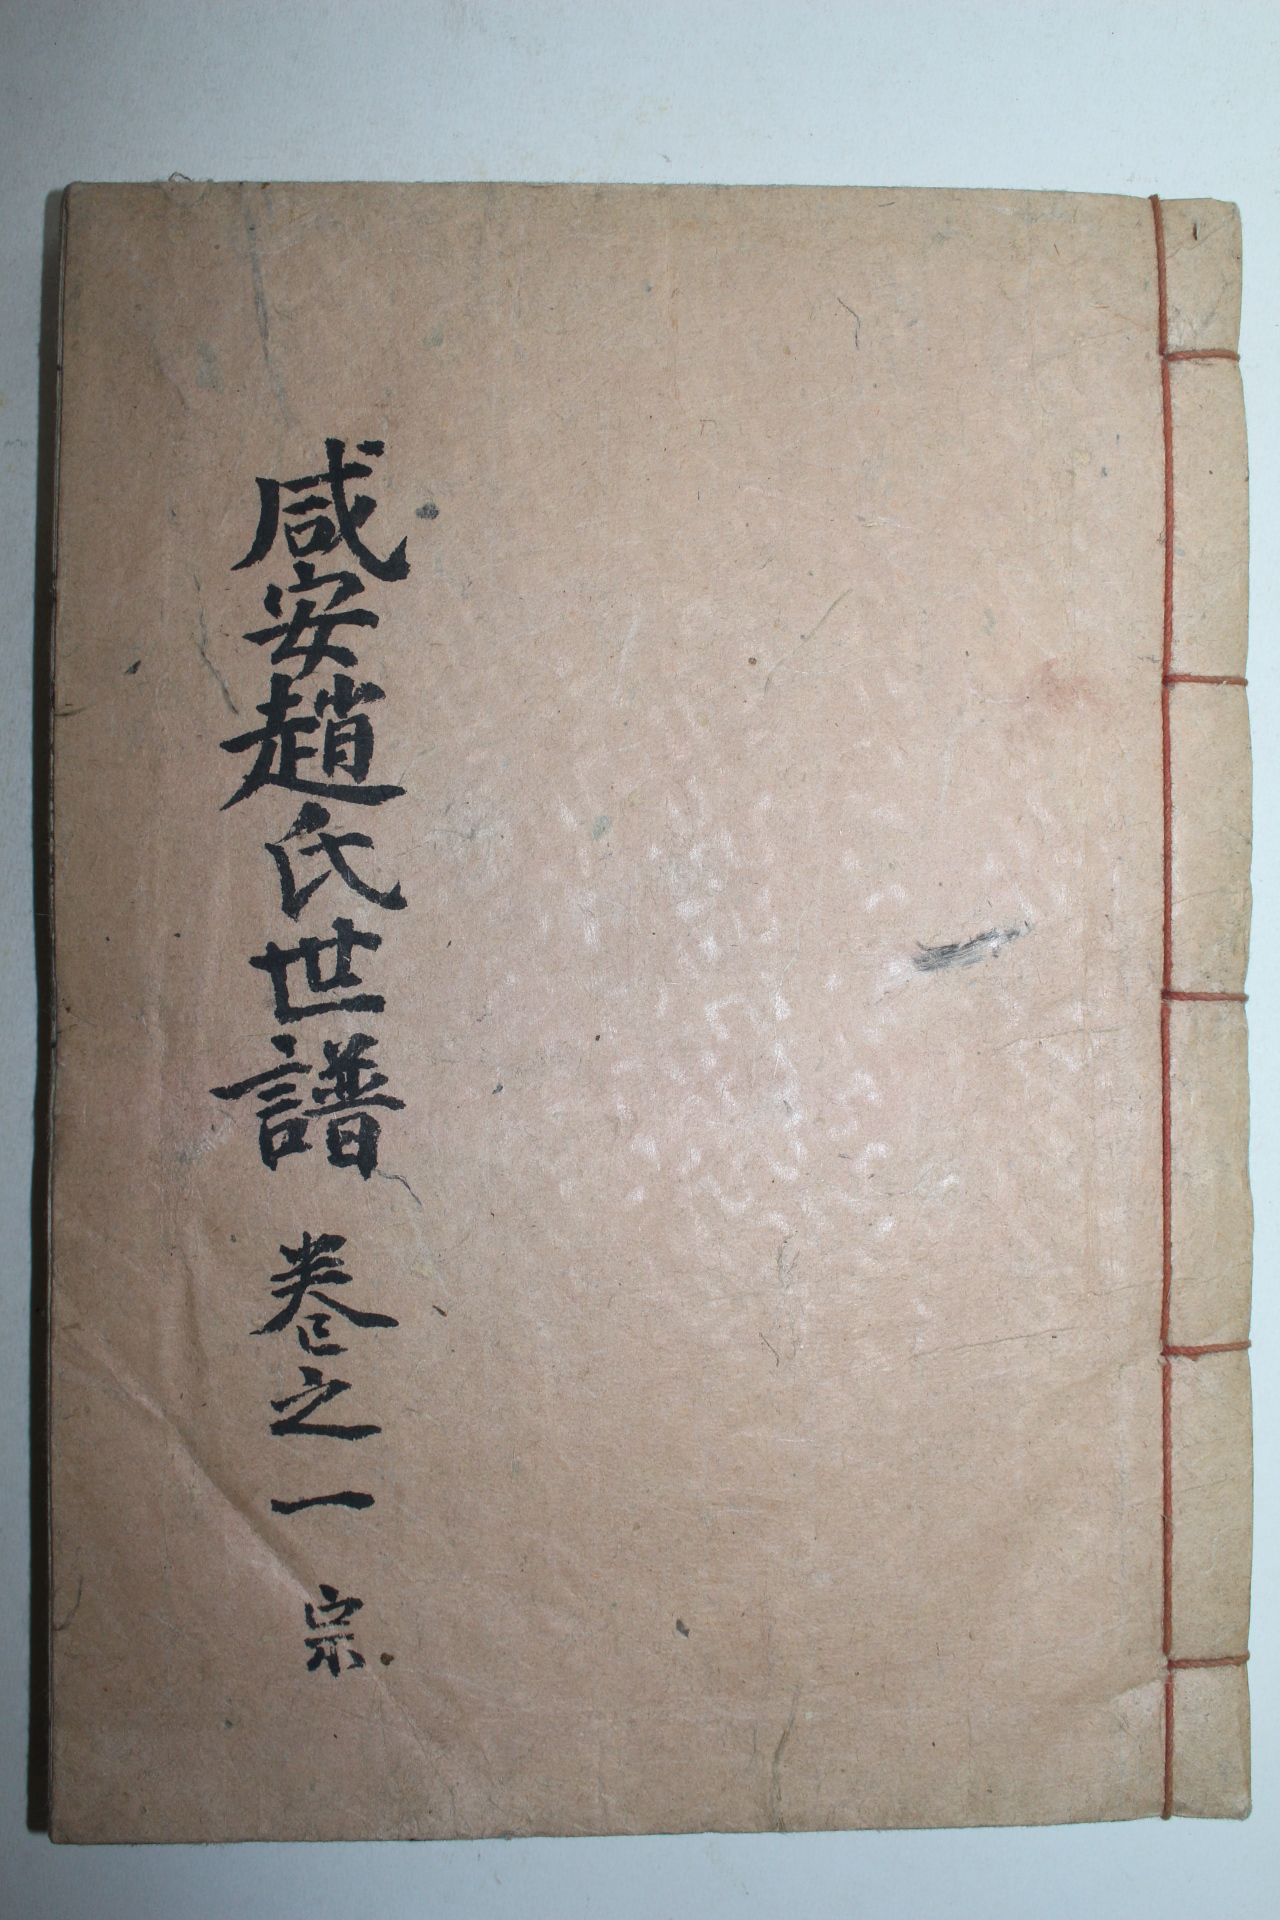 咸安趙氏世譜 卷之一 宗